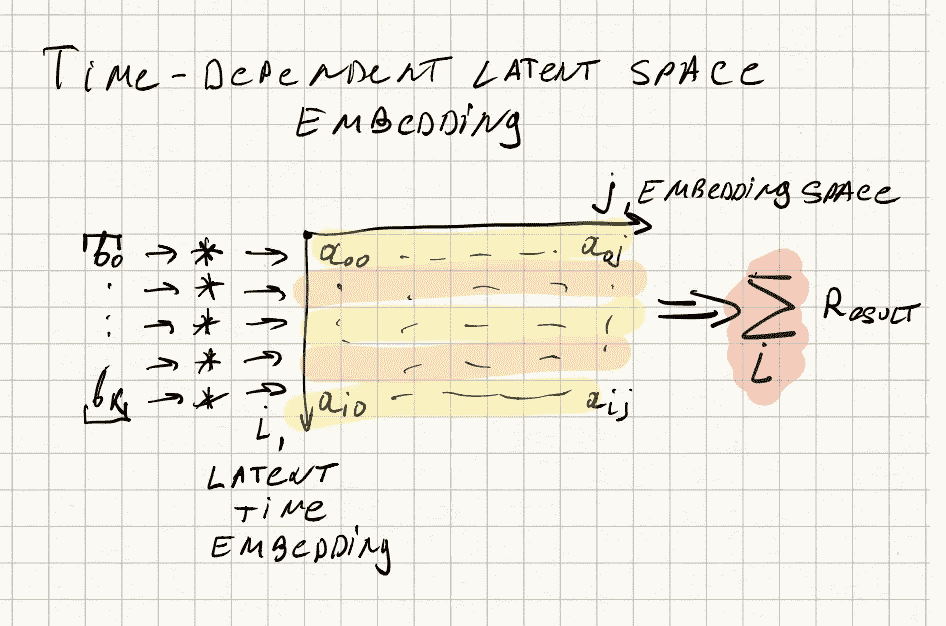 TIME-DEPENDENT LATENT SPACE
EMBEDDING
j, EMBEDDING SPACE
b₀ → * → a₀₀ · – – – · a₀j
: → * →
: → * → ⇒ ∑ RESULT
→ * → i
bₖ → * → aᵢ₀ - — — aᵢj
i,
LATENT
TIME
EMBEDDING